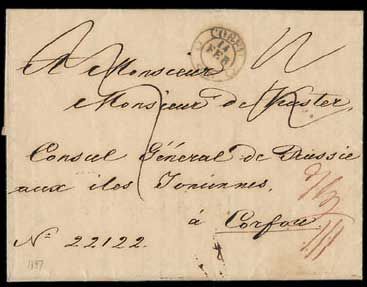 CORFU
14
FEB
A Monsieur
Monsieur de Kuster,
Consul Général de Russie
aux iles Ioniennes,
à Corfou.
N: 22122.